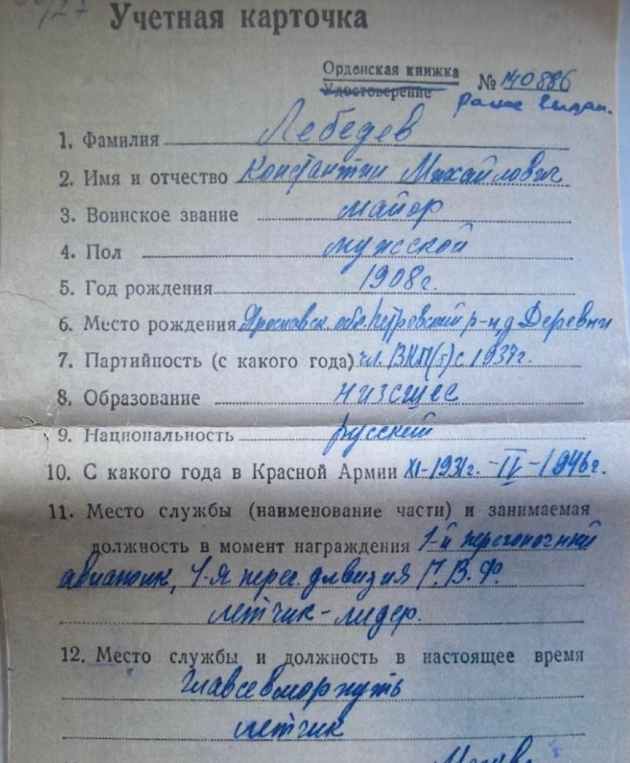 Учетная карточка
Орденская книжка
Удостоверение
№ 140886
ранее выдан.
1. Фамилия Лебедев
2. Имя и отчество Константин Михайлович
3. Воинское звание майор
4. Пол мужской
5. Год рождения 1908г.
6. Место рождения Ярославск. обл. Петровский р-н д. Деревни
7. Партийность (с какого года) чл. ВКП(б) с 1937г.
8. Образование низшее
9. Национальность русский
10. С какого года в Красной Армии XI-1931г. - IV - 1946г.
11. Место службы (наименование части) и занимаемая
должность в момент награждения 1-й перегоночный
авиаполк, 1-я перег. дивизия Г.В.Ф.
летчик-лидер.
12. Место службы и должность в настоящее время
Главсевморпуть
летчик